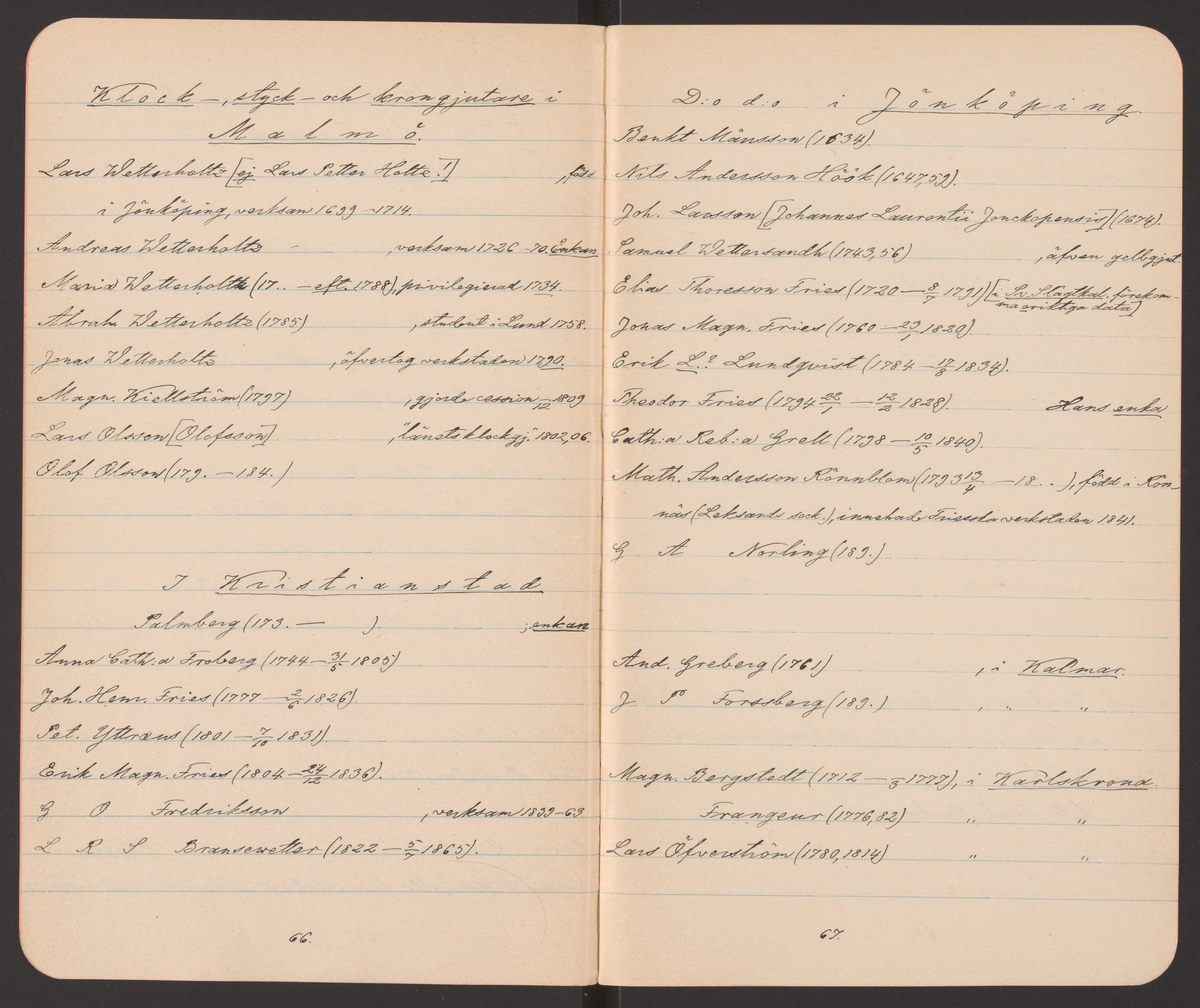 Klock-, styck- och krongjutare i
Malmö.
Lars Wetterholtz [ej Lars Petter Holtz!] , född
i Jönköping, verksam 1699-1714.
Andreas Wetterholtz , verksam 1726-70. Enkan
Maria Wetterholtz (17.. - eft. 1788), privilegierad 1734.
Abrah. Wetterholtz (1785) , student i Lund 1758.
Jonas Wetterholtz , öfvertog verkstaden 1790.
Magn. Kiellström (1797) , gjorde cession /12 1809
Lars Olsson [Olofsson] , "länets klockgj." 1802,06.
Olof Olsson (179. - 184.)
I Kristianstad
Palmberg (173. - ). ; enkan
Anna Cath:a Froberg (1744 - 31/5 1805)
Joh. Henr. Fries (1777 - 2/6 1826).
Pet. Yttræus (1801 - 7/10 1831).
Erik Magn. Fries (1804 - 24/12 1836).
G O Fredriksson , verksam 1839-63.
L R S Bransewetter (1822 - 5/7 1865).
66.
D:o d:o i Jönköping
Benkt Månsson (1634).
Nils Andersson Höök (1647,59).
Joh. Larsson [Johannes Laurentii Jonckopensis] (1674).
Samuel Wettersandh (1743,56) , äfven gelbgjut.
Elias Thoresson Fries (1720 - 8/7 1791) [i Sv. Slägtkal. förekom-
ma oriktiga data]
Jonas Magn. Fries (1760 - 23/1 1820).
Erik L.? Lundqvist (1784 - 17/8 1834).
Theodor Fries (1794 22/1 - 12/2 1828). Hans enka
Cath:a Reb:a Grell (1798 - 10/5 1840).
Math. Andersson Rönnblom (1793 13/4 - 18..), född i Rön-
näs (Leksands sock.), innehade Friesska verkstaden 1841.
G A Norling (189.)
And. Greberg (1761) , i Kalmar.
J P Forssberg (189.) , " "
Magn. Bergstedt (1712 - /3 1777), i Karlskrona.
Frangeur (1776,82) " "
Lars Öfverström (1780,1814) " "
67.